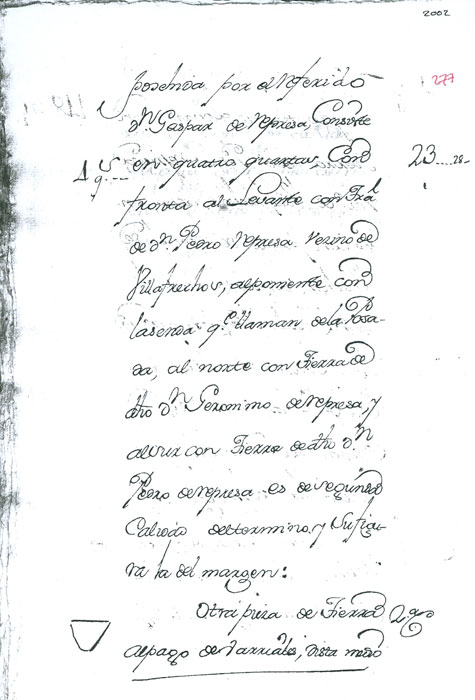 2002
277
posehida por el referido
Dn. Gaspar de represa, Consiste
4 qs... en quatro quartas, Con 23....28..
fronta al Levante con Tra.
de Dn. Pedro represa vezino de
Villafrechos, alponiente con
lasenda qe. llaman dela Posa-
da, al norte con Tierra de
dho Dn. Geronimo de represa, y
alsur con Tierra de dho Dn.
Pedro de represa es de segunda
Calidad deltermino, y Sufigu-
ra la del margen:
Otra pieza de Tierra
alpago de Carriales, dista medio